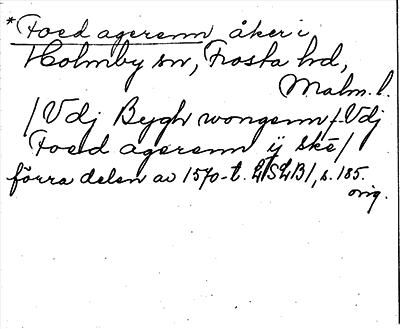 *Foed agerenn åker i
Holmby sn, Frosta hd,
Malm. l.
/Vdj Bygh wongenn / Vdj
Foed agerenn ij ske/
förra delen av 1570-t. LSLB1, s. 185.
orig.